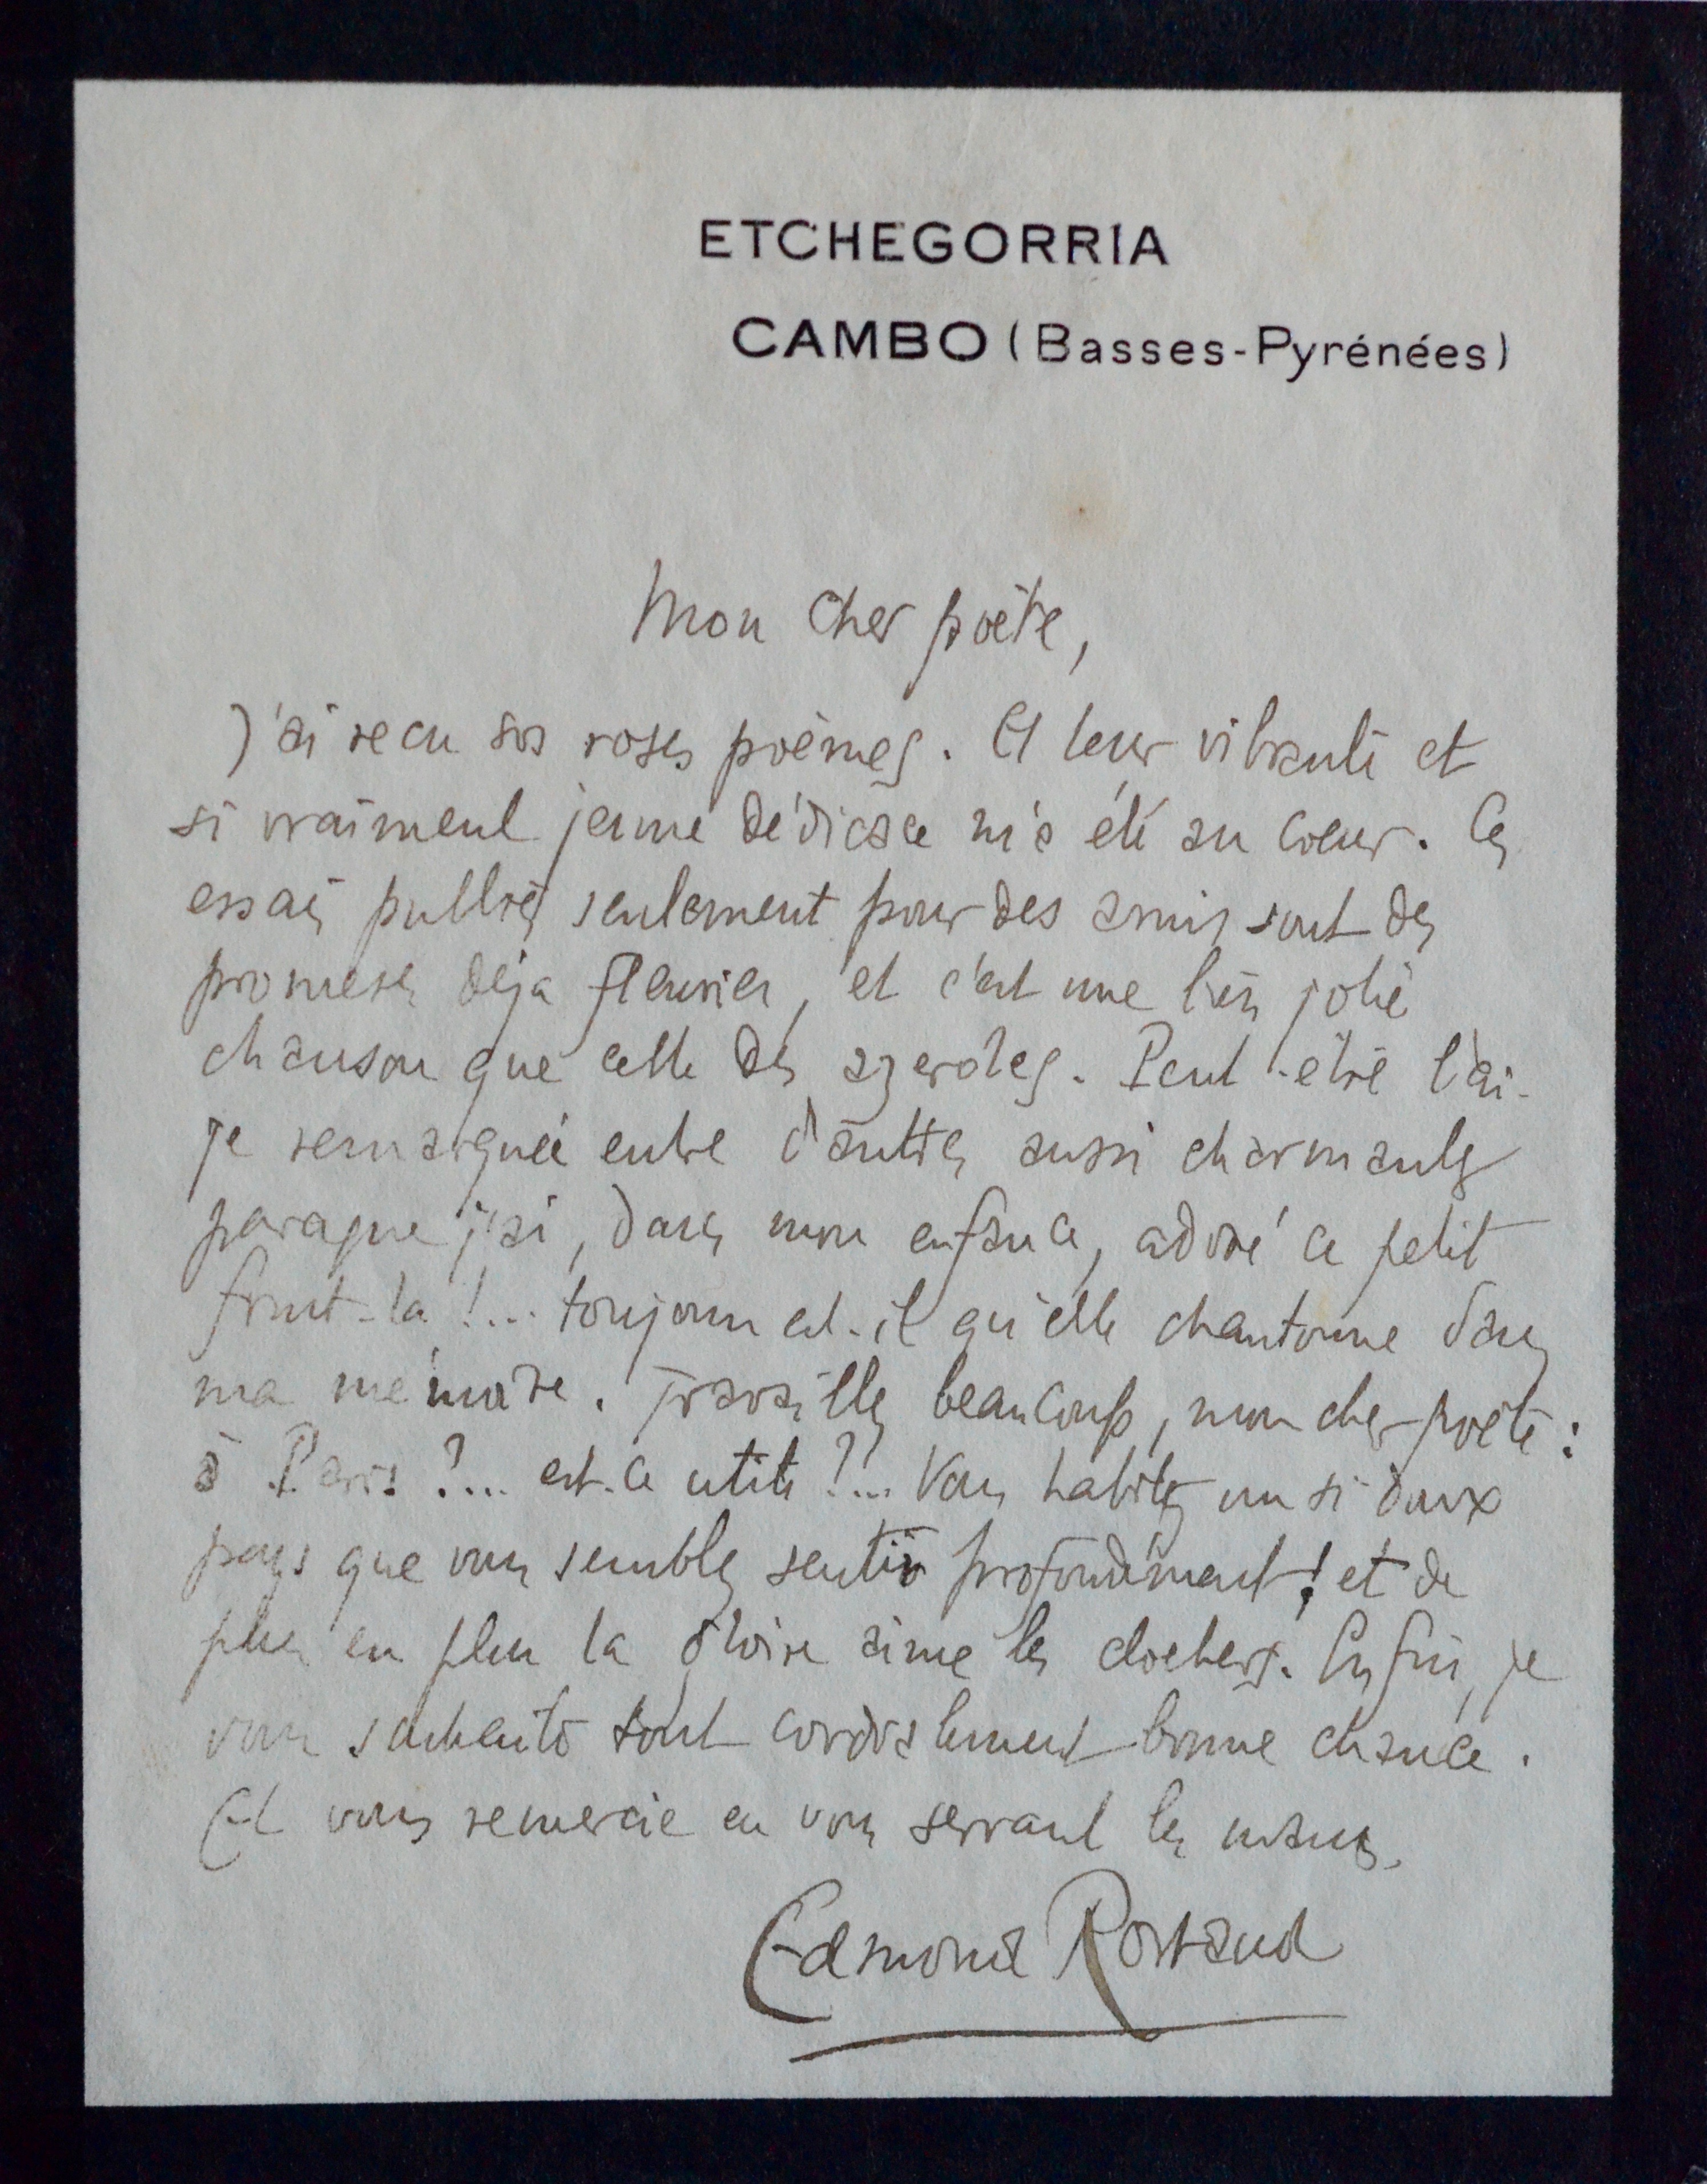 ETCHEGORRIA
CAMBO (Basses-Pyrénées)
Mon cher poète,
J'ai reçu vos roses poèmes. Et leur vibrante et
si vraiment jeune dédicace m'a été au coeur. Ces
essais publiés seulement pour des amis sont des
promesses déjà fleuries, et c'est une très jolie
chanson que celle des azeroles. Peut-être l'ai-
je remarquée entre d'autres aussi charmantes
parceque j'ai, dans mon enfance, adoré ce petit
fruit-là !... toujours est-il qu'elle chantonne dans
ma mémoire. Travaillez beaucoup, mon cher poète :
à Paris ?... est-ce utile ?... Vous habitez un si doux
pays que vous semblez sentir profondément ! et de
plus en plus la gloire aime les clochers. Enfin, je
vous souhaite tout cordialement bonne chance.
Et vous remercie en vous serrant les mains.
Edmond Rostand